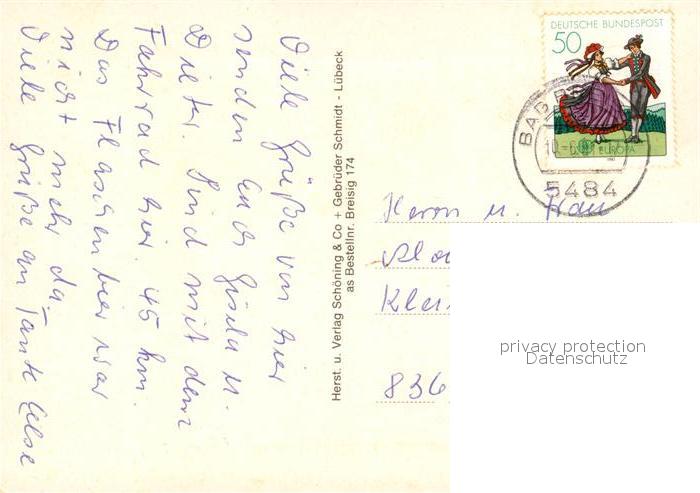 Viele Grüße von hier
senden Euch Gisela u.
Dieter. Sind mit dem
Fahrrad hier. 45 km.
Das Flaschenbier war
nicht mehr da.
Viele Grüße an Tante Else
Herst. u. Verlag Schöning & Co + Gebrüder Schmidt - Lübeck
as Bestellnr. Breisig 174
DEUTSCHE BUNDESPOST
50
EUROPA
BAD
5484
Herrn u. Frau
Klei
836
privacy protection
Datenschutz